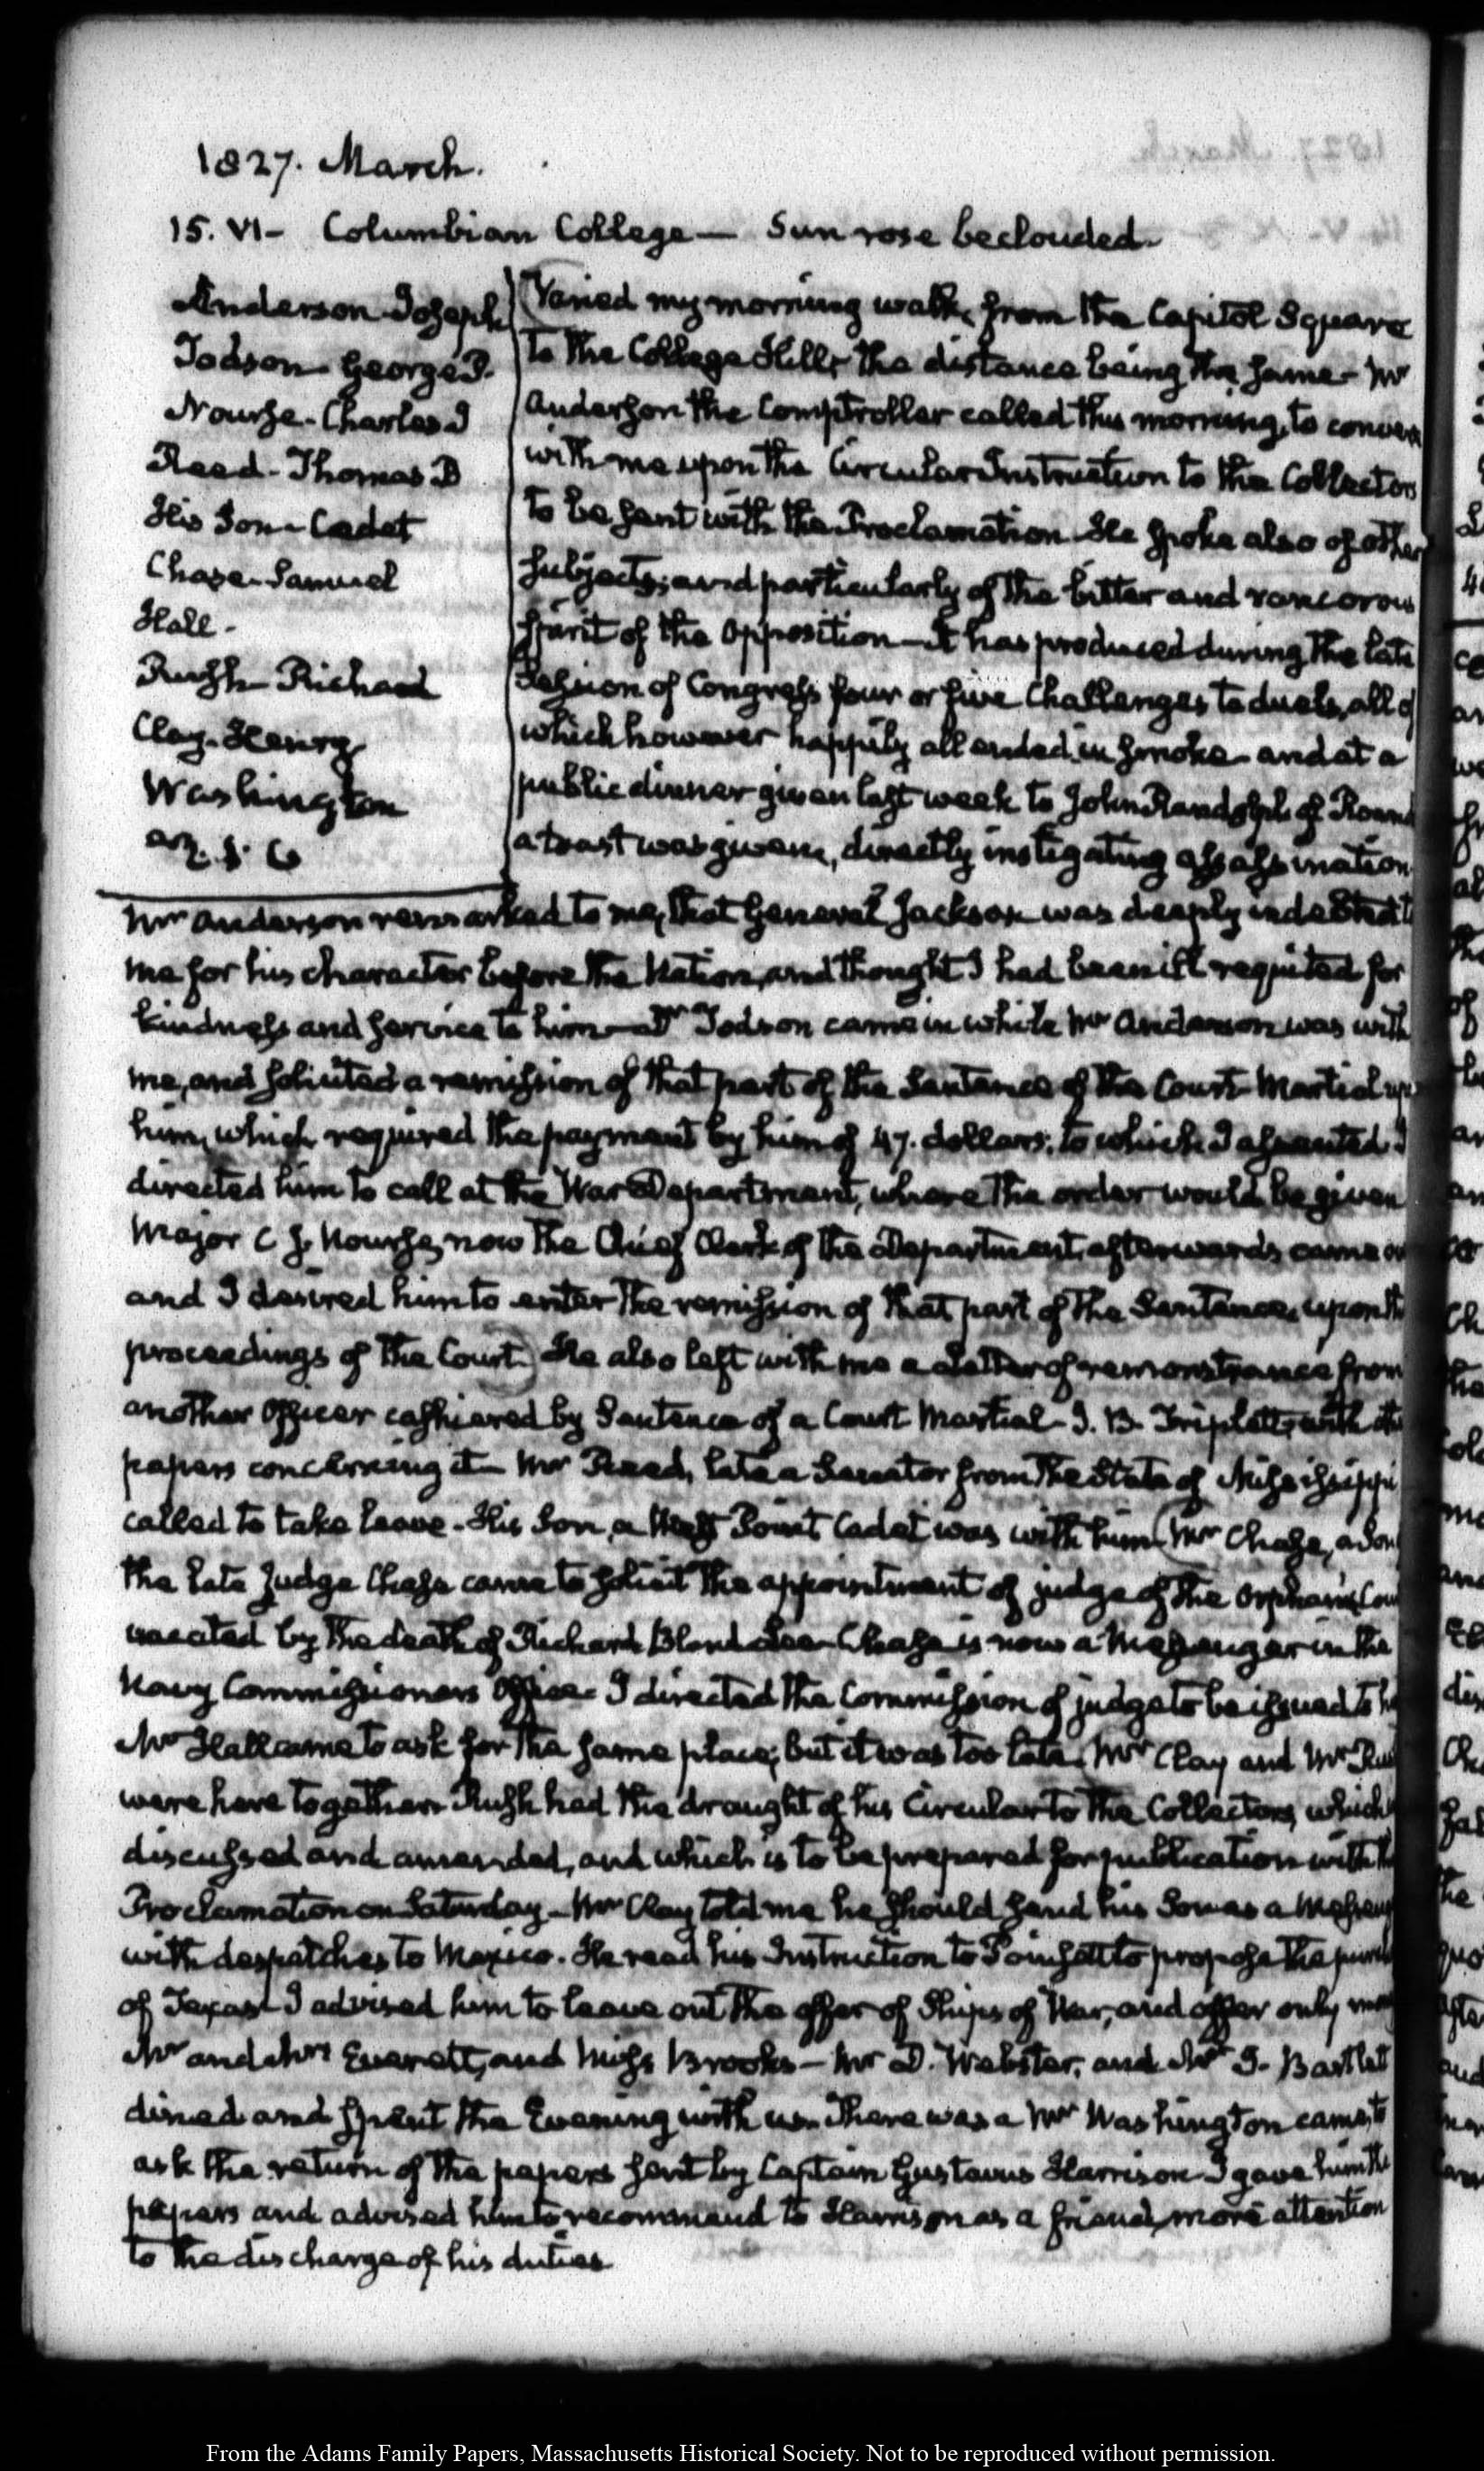 1827. March.
15. VI- Columbian College — Sun rose beclouded.
Anderson Joseph
Todson George P.
Nourse. Charles J
Reed. Thomas B
His Son - Cadet
Chase. Samuel
Hall.
Rush. Richard
Clay. Henry
Washington
Varied my morning walk, from the Capitol Square
to the College Hill, the distance being the same - Mr
Anderson the Comptroller called this morning, to
with me upon the Circular Instruction to the Collectors
to be sent with the Proclamation. He spoke also of other
subjects; and particularly of the bitter and rancorous
spirit of the opposition — It has produced during the late
Session of Congress four or five challenges to duels, all of
which however happily all ended in smoke - and at a
public dinner given last week to John Randolph of
a toast was given, directly instigating assassination
Mr Anderson remarked to me, that General Jackson was deeply indebted
me for his character before the Nation, and thought I had been ill requited for
kindness and service to him — Dr Todson came in while Mr Anderson was with
me, and solicited a remission of that part of the Sentence of the Court-Martial
him, which required the payment by him of 47. dollars; to which I assented. I
directed him to call at the War Department, where the order would be given
Major C. J. Nourse, now the Chief Clerk of the Department, afterwards came
and I desired him to enter the remission of that part of the Sentence, upon
proceedings of the Court. He also left with me a Letter of remonstrance from
another Officer cashiered by Sentence of a Court Martial - J. B. Triplett, with
papers concerning it — Mr Reed, late a Senator from the State of Mississippi
called to take leave - His Son, a West Point Cadet was with him (Mr Chase, a Son
the late Judge Chase came to solicit the appointment of judge of the Orphan's
vacated by the death of Richard Bland Lee - Chase is now a Messenger in the
Navy Commissioners Office - I directed the Commission of judge to be issued to
Mr Hall came to ask for the same place; but it was too late. Mr Clay and Mr
were here together. Rush had the draught of his Circular to the Collectors, which
discussed and amended, and which is to be prepared for publication with
Proclamation on Saturday - Mr Clay told me he should send his Son as a
with despatches to Mexico. He read his Instruction to Poinsett to propose the
of Texas - I advised him to leave out the offer of Ships of War, and offer only
Mr and Mrs Everett, and Miss Brooks — Mr D. Webster, and Mr I. Bartlett
dined and spent the Evening with us. There was a Mr Washington came to
ask the return of the papers sent by Captain Gustavus Harrison. I gave him the
papers and advised him to recommend to Harrison as a friend, more attention
to the discharge of his duties
From the Adams Family Papers, Massachusetts Historical Society. Not to be reproduced without permission.